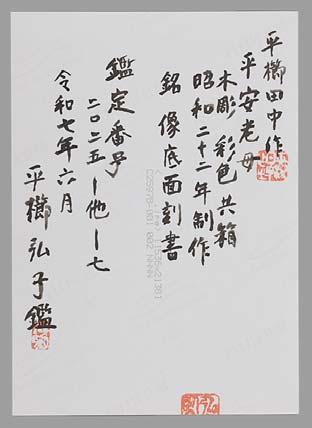 平櫛田中作
平安老母
木彫 彩色 共箱
昭和二十二年制作
銘 像底面刻書
鑑定番号
二〇二五ー他ー七
令和七年六月
平櫛弘子鑑